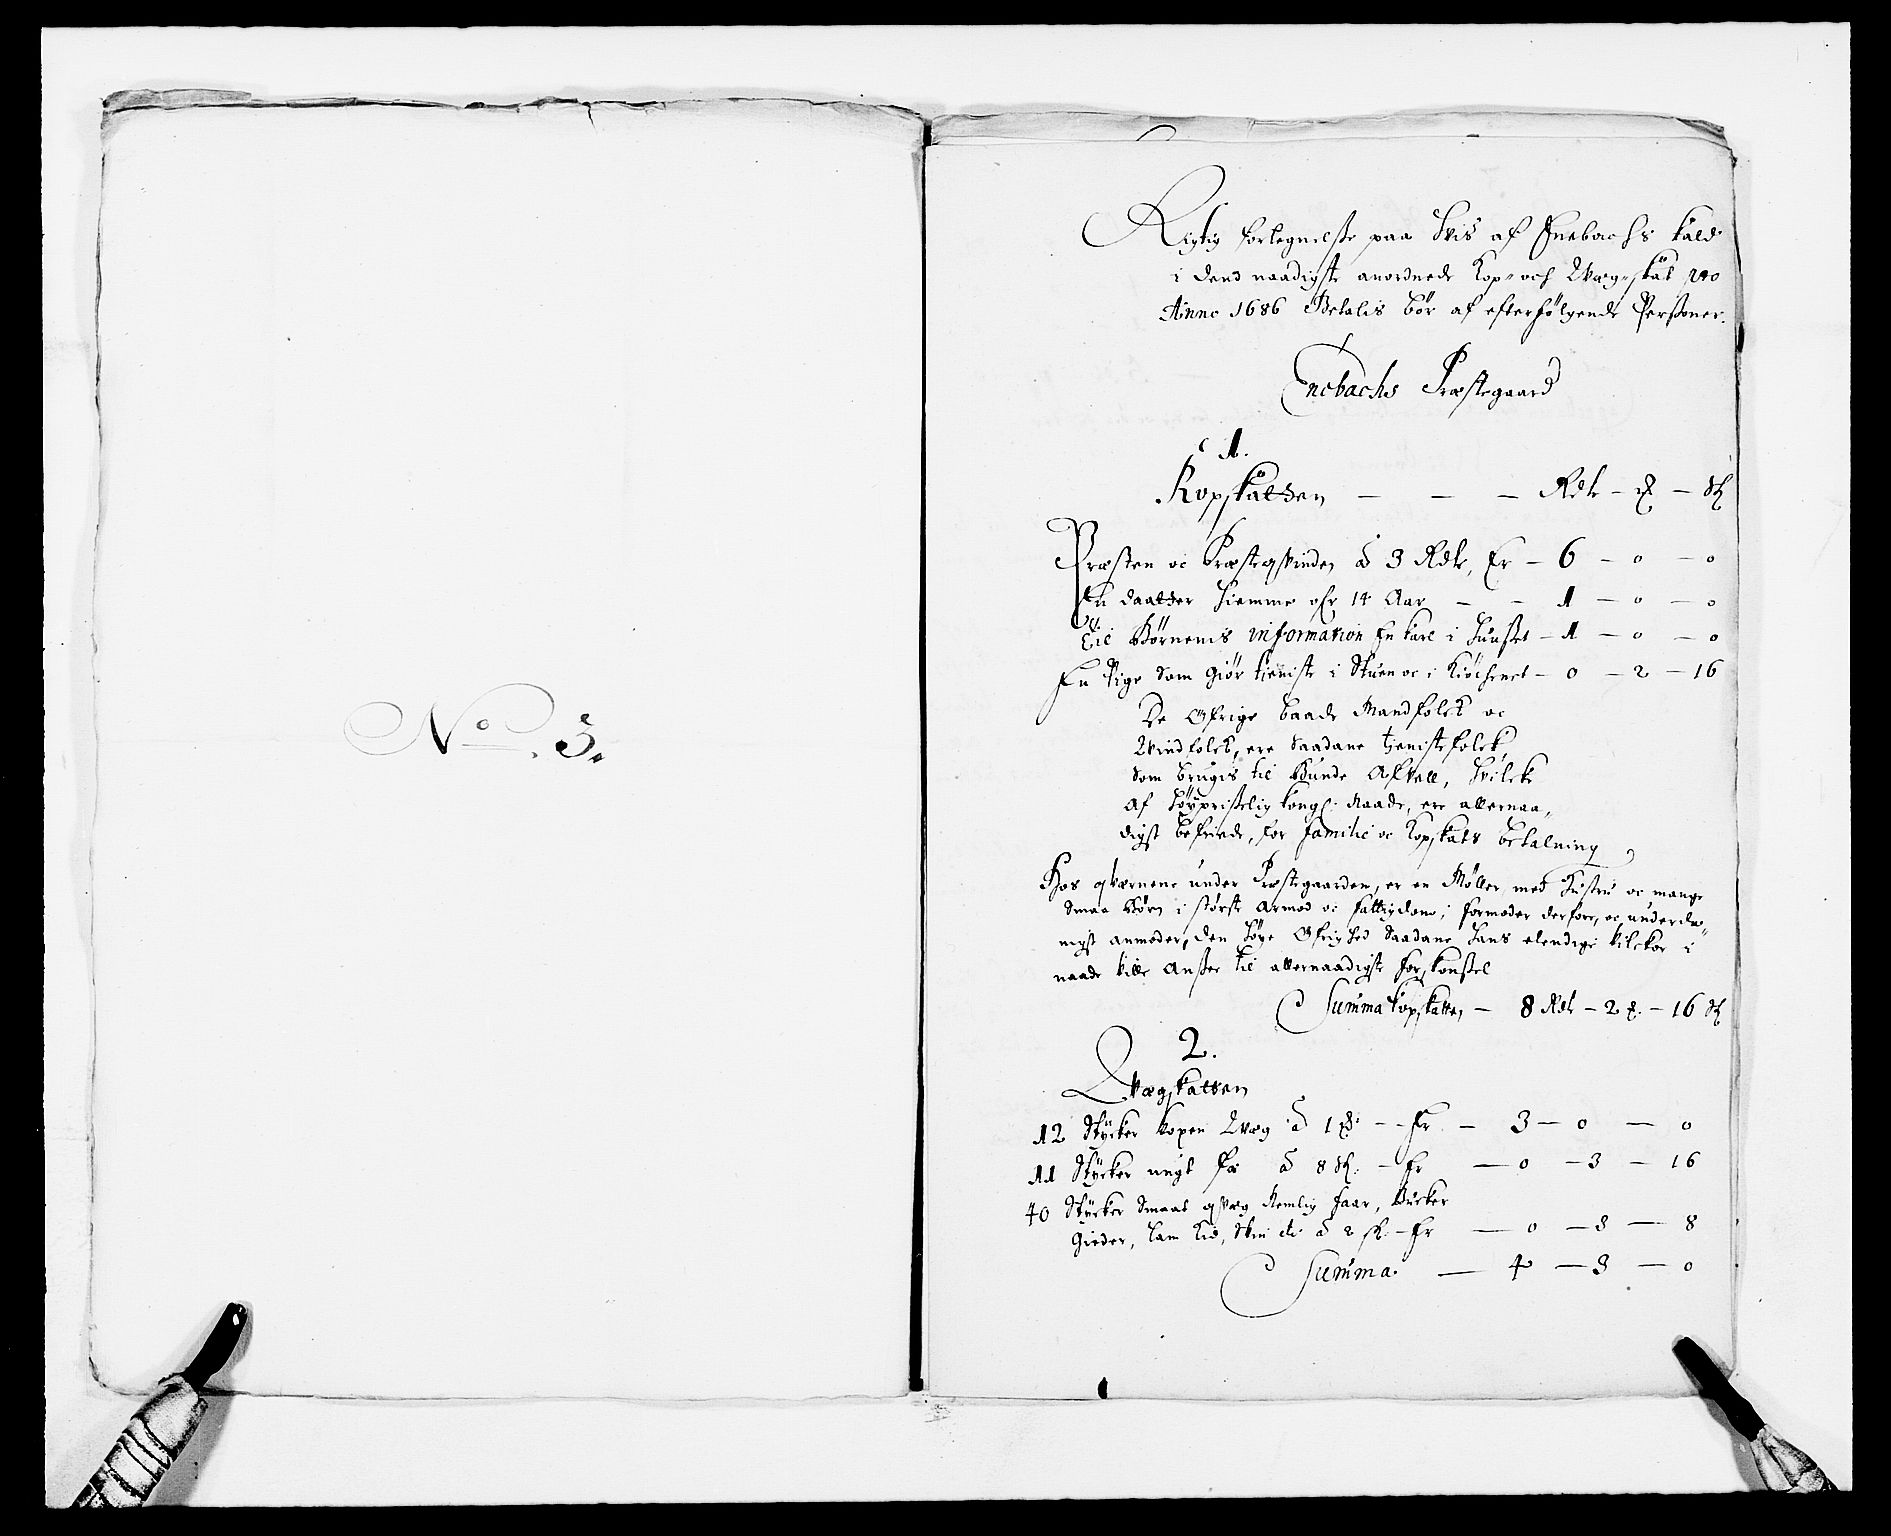 No 3.
Rigtig fortegnelsse paa hvis af Enebachs kald
i dend naadigste anordnede Kop- och Qvæg-skat pro
Anno 1686 Betalis bør af efterfølgende Perssoner.
Enebachs Præstegaard
1.
Kopskatten — — — Rdlr — ₰ — sk
Præsten oc Præsteqvinden à 3 Rdlr, Er — 6 — 0 — 0
En daatter hiemme ofr 14 Aar — — 1 — 0 — 0
Til Børnenis information En karl i huusset — 1 — 0 — 0
En Pige som giør tieniste i Stuen oc i Kiøchenet — 0 — 2 — 16
De øfrige baade Mandfolck oc
Qvindfolck, ere saadane tienistefolck,
som brugis til Bunde Afvell, hvilcke
af høypriselig kongl: Naade, ere allernaa-
digst befriede, for familie oc Kopskats betalning
Hos qværnene under Præstegaarden, er en Møller med hustru oc mange
smaa Børn i største armod oc fattigdom; formoder derfore, oc underda-
nigst anmoder, den høye Øfrighed saadane hans elendige vilckor i
naade ville ansee til allernaadigste forskonssel
Summa kopskatten — 8 Rdlr — 2 ₰. — 16 sk
2.
Qvægskatten
12 Stycker voxen Qvæg à 1 ₰. — Er — 3 — 0 — 0
11 Stycker ungt fæ à 8 sk. — Er — 0 — 3 — 16
40 Stycker smaat qvæg Nemlig faar, Bucker
Gieder, Lam kid, Svin etc à 2 sk. — Er — 0 — 3 — 8
Summa. — 4 — 3 — 0